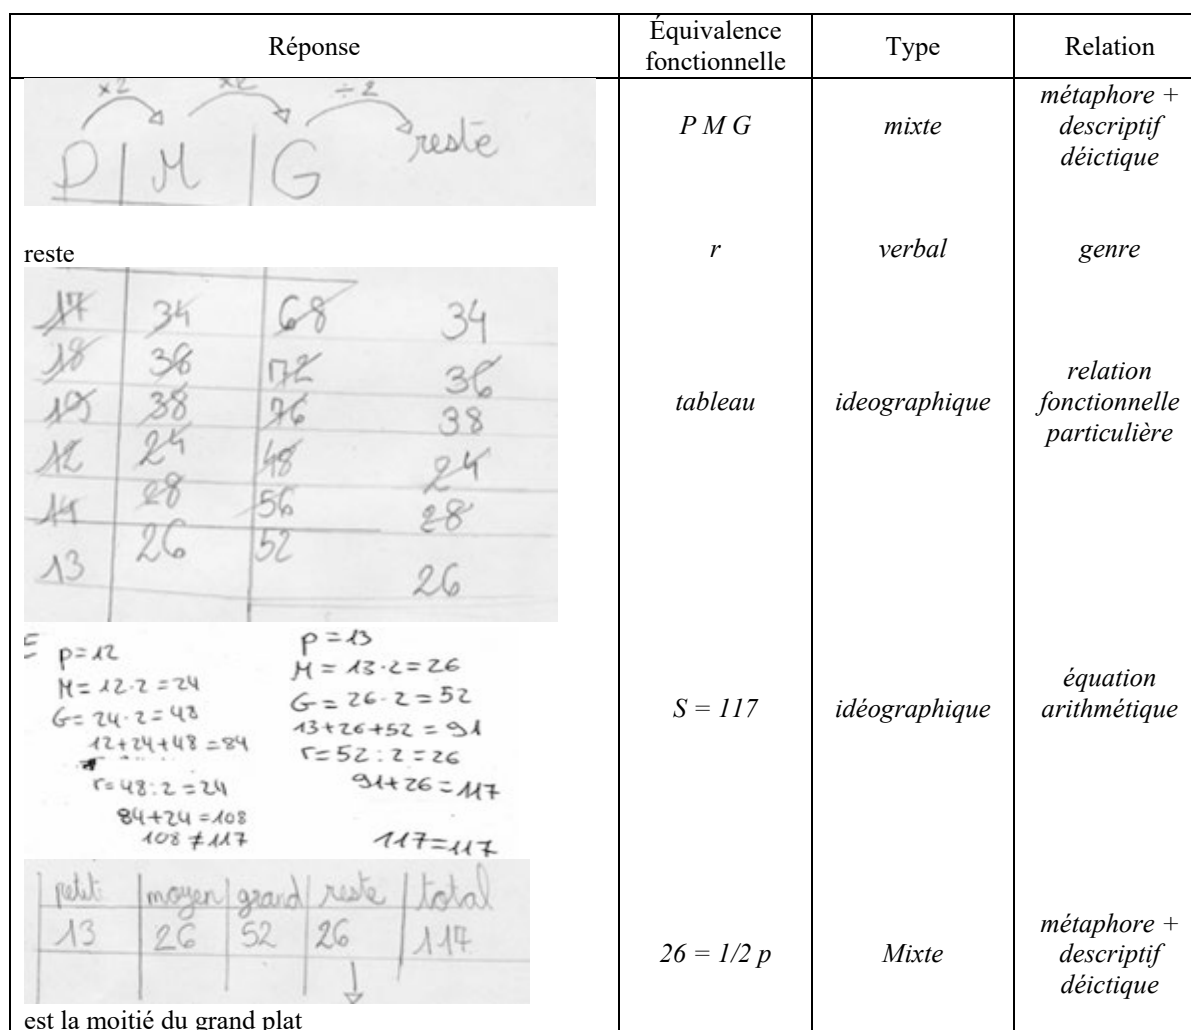 Réponse Équivalence fonctionnelle Type Relation
×2 ×2 ÷2
P M G reste
P M G mixte métaphore + descriptif déictique
reste r verbal genre
17 34 68 34
18 36 72 36
19 38 76 38
12 24 48 24
14 28 56 28
13 26 52 26
tableau ideographique relation fonctionnelle particulière
p=12
M=12·2=24
G=24·2=48
12+24+48=84
r=48:2=24
84+24=108
108≠117
p=13
M=13·2=26
G=26·2=52
13+26+52=91
r=52:2=26
91+26=117
117=117
S = 117 idéographique équation arithmétique
petit moyen grand reste total
13 26 52 26 117
26 = 1/2 p Mixte métaphore + descriptif déictique
est la moitié du grand plat